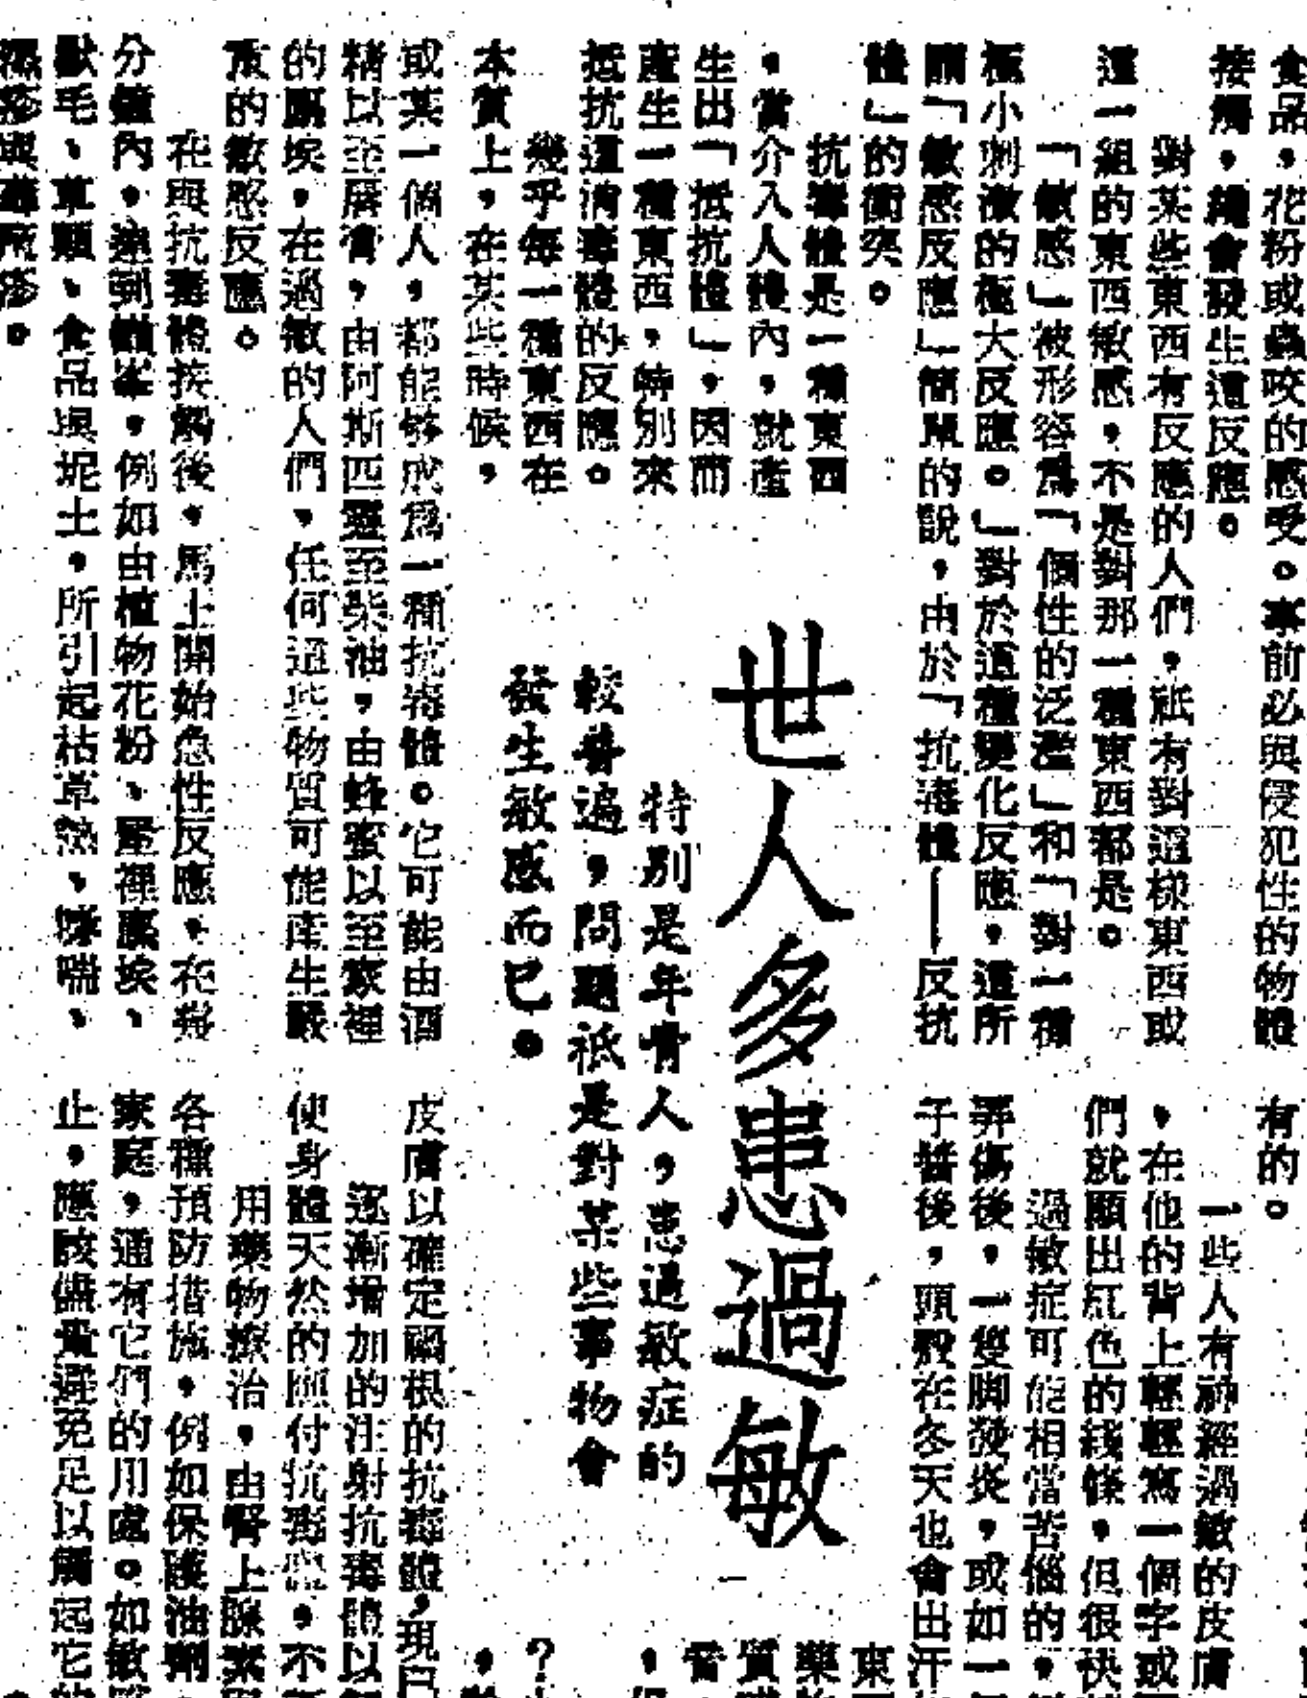 食品，花粉或蟲咬的感受。事前必與侵犯性的物體
接觸，纔會發生這反應。
對某些東西有反應的人們，祇有對這樣東西或
這一組的東西敏感，不是對那一種東西都是。
「敏感」被形容爲「個性的泛濫」和「對一種
極小刺激的極大反應。」對於這種變化反應，這所
謂「敏感反應」簡單的說，由於「抗毒體——反抗
體」的衝突。
抗毒體是一種東西
，當介入人體內，就產
生出「抵抗體」，因而
產生一種東西，特別來
抵抗這消毒體的反應。
幾乎每一種東西在
本質上，在某些時候，
世人多患過敏
特別是年青人，患過敏症的
較普遍，問題祇是對某些事物會
發生敏感而已。
或某一個人，都能夠成爲一種抗毒體。它可能由酒
精以至唇膏，由阿斯匹靈至柴油，由蜂蜜以至家裡
的塵埃，在過敏的人們，任何這些物質可能產生嚴
重的敏感反應。
在與抗毒體接觸後，馬上開始急性反應，在幾
分鐘內，達到巔峯，例如由植物花粉、屋裡塵埃、
獸毛、草類、食品與坭土，所引起枯草熱、哮喘、
濕疹與蕁麻疹。
有的。
一些人有神經過敏的皮膚
，在他的背上輕輕寫一個字或
們就顯出紅色的綫條，但很快
過敏症可能相當苦惱的，
弄傷後，一雙脚發炎，或如一
子醬後，頭殼在冬天也會出汗
東
藥
質
皮膚以確定禍根的抗毒體，現
逐漸增加的注射抗毒體以
使身體天然的應付抗毒體，不
用藥物療治，由腎上腺素
各種預防措施，例如保護油劑
家庭，通有它們的用處。如敏
止，應該儘量避免足以觸起它